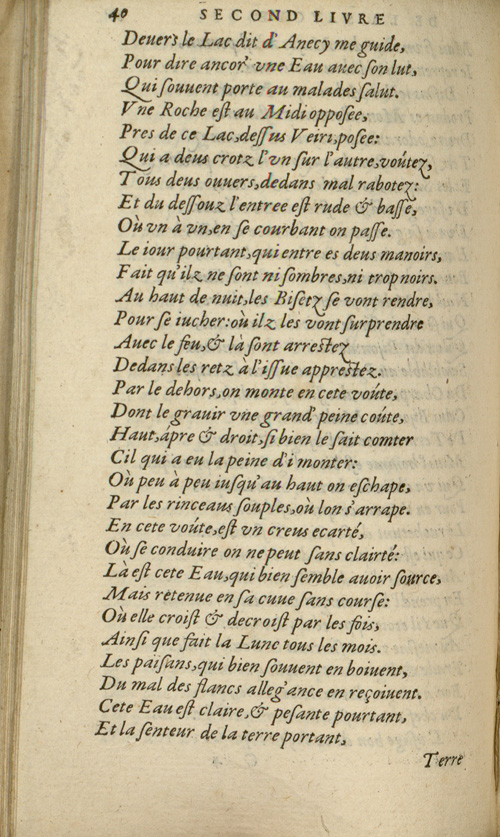 40 SECOND LIVRE
Deuers le Lac dit d'Anecy me guide,
Pour dire ancor' vne Eau auec son lut,
Qui souuent porte au malades salut.
Vne Roche est au Midi opposee,
Pres de ce Lac, dessus Veiri, posee:
Qui a deus crotz l'vn sur l'autre, voútez,
Tous deus ouuers, dedans mal rabotez:
Et du dessouz l'entree est rude & basse,
Où vn à vn, en se courbant on passe.
Le iour pourtant, qui entre es deus manoirs,
Fait qu'ilz ne sont ni sombres, ni trop noirs.
Au haut de nuit, les Bisetz se vont rendre,
Pour se iucher: où ilz les vont surprendre
Auec le feu, & là sont arrestez
Dedans les retz à l'issue apprestez.
Par le dehors, on monte en cete voúte,
Dont le grauir vne grand' peine coúte,
Haut, ápre & droit, si bien le sait comter
Cil qui a eu la peine d'i monter:
Où peu à peu iusqu'au haut on eschape,
Par les rinceaus souples, où lon s'arrape.
En cete voúte, est vn creus ecarté,
Où se conduire on ne peut sans clairté:
Là est cete Eau, qui bien semble auoir source,
Mais retenue en sa cuue sans course:
Où elle croist & decroist par les fois,
Ainsi que fait la Lune tous les mois.
Les païsans, qui bien souuent en boiuent,
Du mal des flancs alleg'ance en reçoiuent.
Cete Eau est claire, & pesante pourtant,
Et la senteur de la terre portant,
Terre